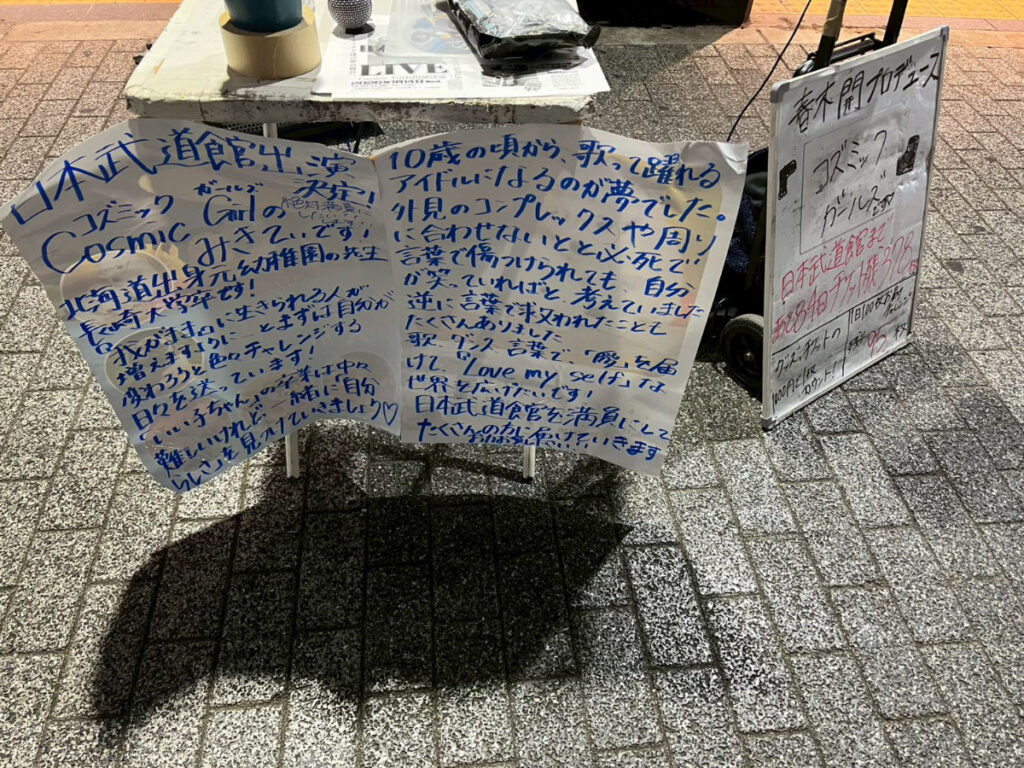 LIVE
日本武道館出演
決定!
絶対満員に
したいです
コズミック ガールズ
Cosmic Girlの
みきてぃです!
北海道出身元幼稚園の先生
長崎大学卒です!
我がままに生きられる人が
増えますように とまずは自分が
変わろうと色々チャレンジする
日々を送っています!
「いい子ちゃん」の卒業は中々
難しいけれど一緒に「自分
らしさ」を見つけていきましょう♡
10歳の頃から、歌って踊れる
アイドルになるのが夢でした。
外見のコンプレックスや周り
に合わせないとと必死で!
言葉で傷つけられても 自分
が笑っていればと 考えていました
逆に言葉で救われたことも
たくさんありました
歌 ダンス 言葉で、「愛」を届
けて、「Love my self」な
世界を広げたいです!
日本武道館を満員にして
たくさんの方に届けていきます
春木開プロデュース
コズミック
ガールズ
です
日本武道館まで
あと84日チケット残375
グッズ、チケットの
100円=1枚
カウント!
95